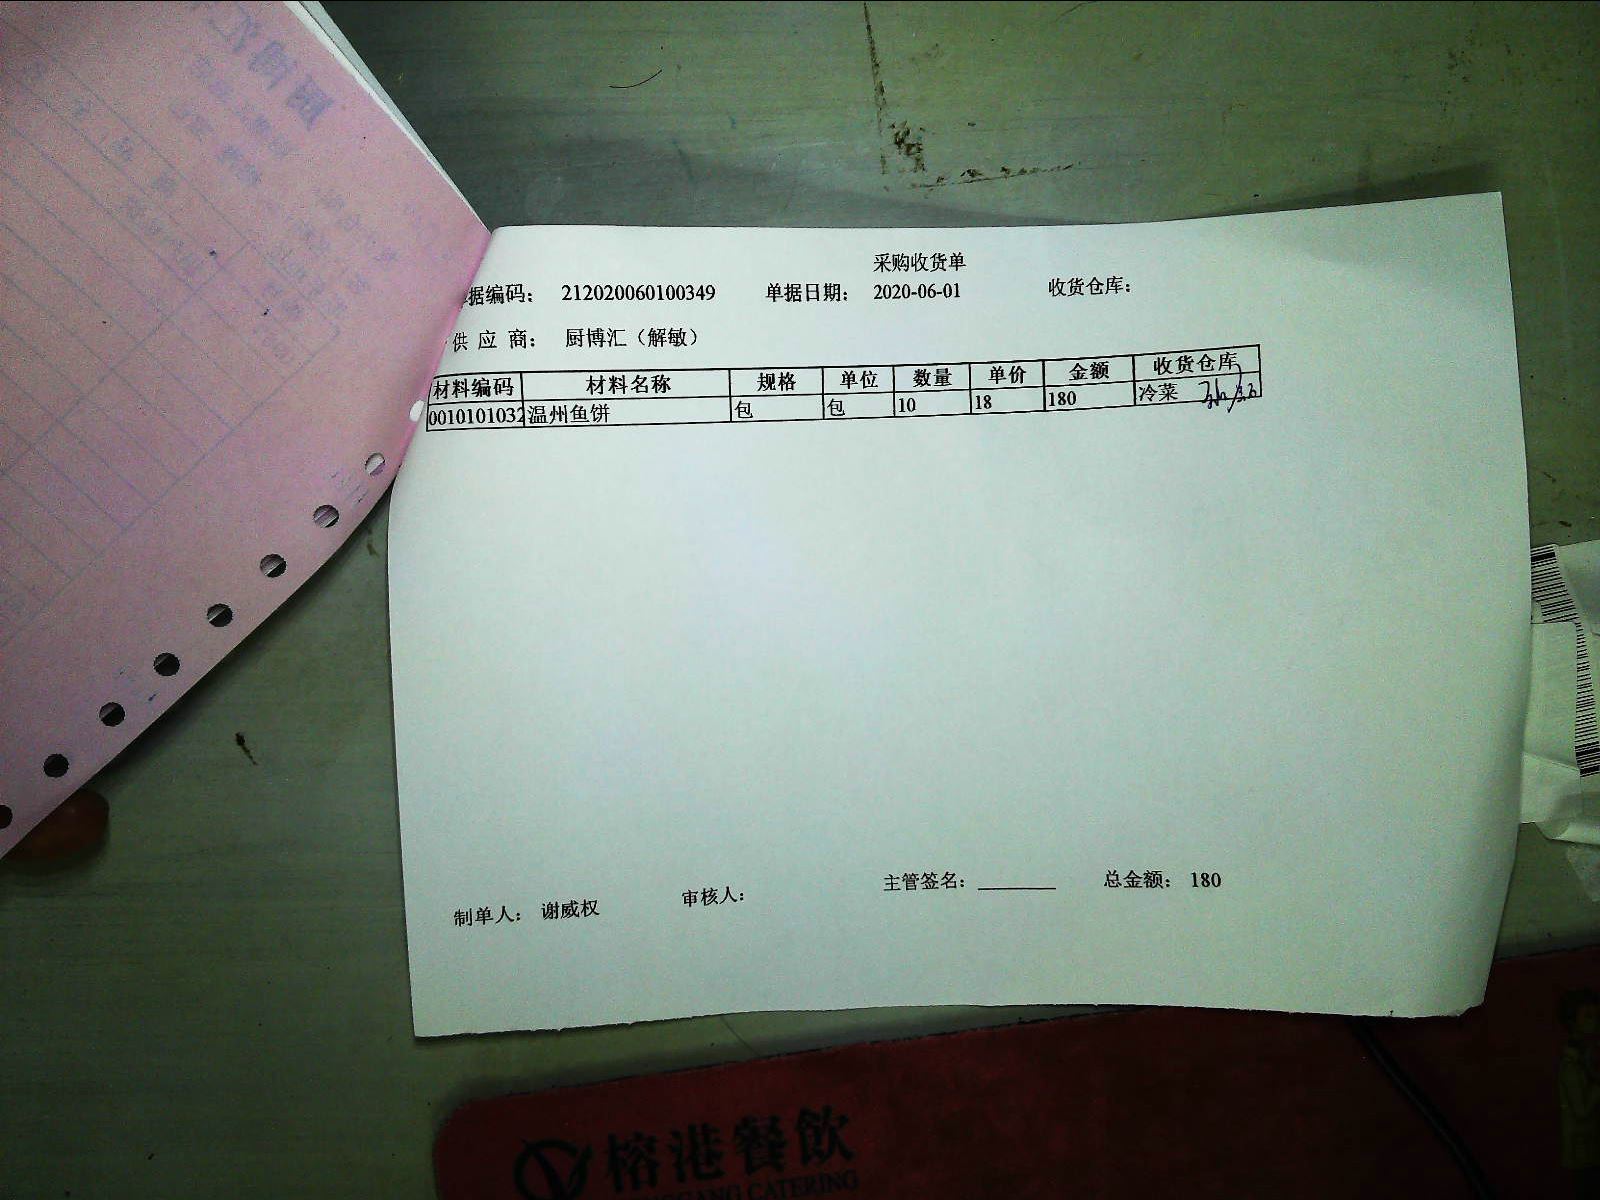 采购收货单
据编码： 212020060100349 单据日期： 2020-06-01 收货仓库：
供 应 商： 厨博汇（解敏）
材料编码 材料名称 规格 单位 数量 单价 金额 收货仓库
0010101032 温州鱼饼 包 包 10 18 180 冷菜
制单人： 谢威权 审核人： 主管签名： 总金额： 180
榕港餐飲
CATERING